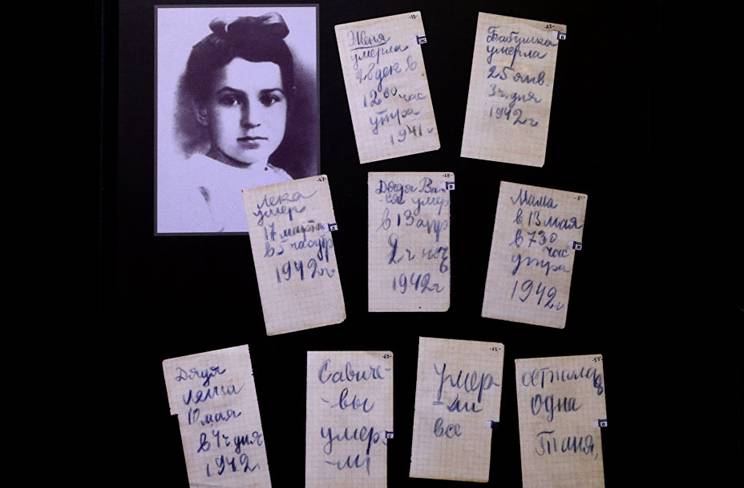 Женя
умерла
28 дек в
12 00 час
утра
1941 г
Бабушка
умерла
25 янв.
3 ч дня
1942 г
Лека
умер
17 марта
в 5 часутр
1942 г
Дядя Ва
-ся умер
в 13 апр
2 ч ноч
1942 г
Мама
в 13 мая
в 7 30 час
утра
1942 г
Дядя
Леша
10 мая
в 4 ч дня
1942
Савиче-
-вы
умер-
-ли
умер
-ли
все
осталась
одна
Таня.